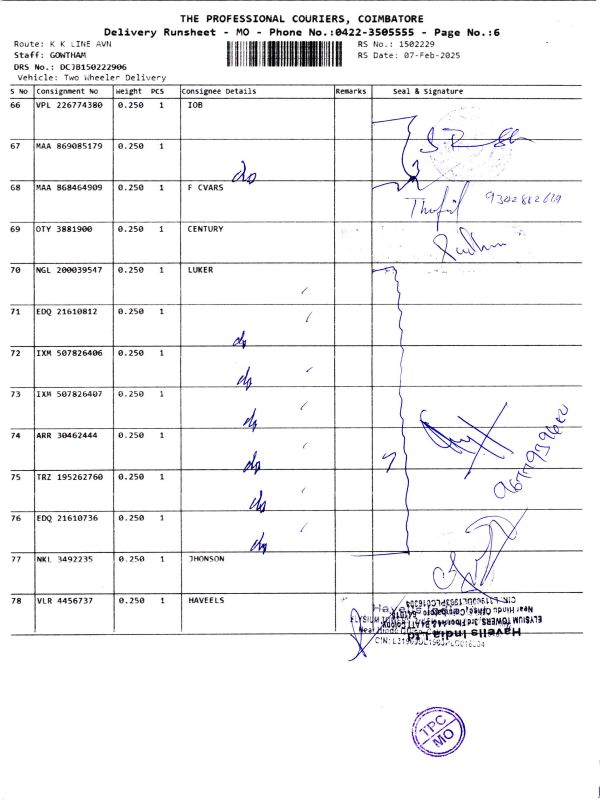 THE PROFESSIONAL COURIERS, COIMBATORE
Delivery Runsheet - MO - Phone No.:0422-3505555 - Page No.:6
Route: K K LINE AVN
RS No.: 1502229
Staff: GOWTHAM
RS Date: 07-Feb-2025
DRS No.: DCJB150222906
Vehicle: Two Wheeler Delivery
S No Consignment No Weight PCS Consignee Details Remarks Seal & Signature
66 VPL 226774380 0.250 1 IOB
67 MAA 869085179 0.250 1
do
68 MAA 868464909 0.250 1 F CVARS
69 OTY 3881900 0.250 1 CENTURY
70 NGL 200039547 0.250 1 LUKER
71 EDQ 21610812 0.250 1
do
72 IXM 507826406 0.250 1
do
73 IXM 507826407 0.250 1
do
74 ARR 30462444 0.250 1
do
75 TRZ 195262760 0.250 1
do
76 EDQ 21610736 0.250 1
do
77 NKL 3492235 0.250 1 JHONSON
78 VLR 4456737 0.250 1 HAVEELS
Havells India Ltd
ELYSIUM TOWERS, 3rd Floor
Near Hindu Office, Coimbatore
TPC
MO